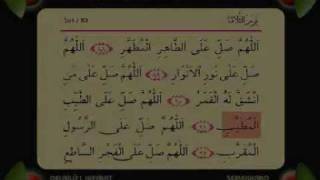 اَللّٰهُمَّ صَلِّ عَلَى الطَّاهِرِ الْمُطَهَّرِ اَللّٰهُمَّ
صَلِّ عَلَى نُورِ الْاَنْوَارِ اَللّٰهُمَّ صَلِّ عَلَى مَنِ
انْشَقَّ لَهُ الْقَمَرُ اَللّٰهُمَّ صَلِّ عَلَى الطَّيِّبِ
الْمُطَيَّبِ اَللّٰهُمَّ صَلِّ عَلَى الرَّسُولِ
الْمُقَرَّبِ اَللّٰهُمَّ صَلِّ عَلَى الْفَجْرِ السَّاطِعِ